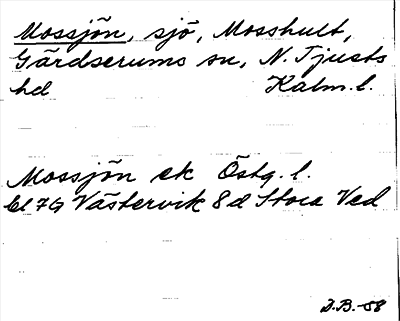 Mossjön, sjö, Mosshult,
Gärdserums sn, N. Tjusts
hd Kalm. l.
Mossjön ek Östg. l.
Bl 7G Västervik 8d Stora Ved
D.B. -58